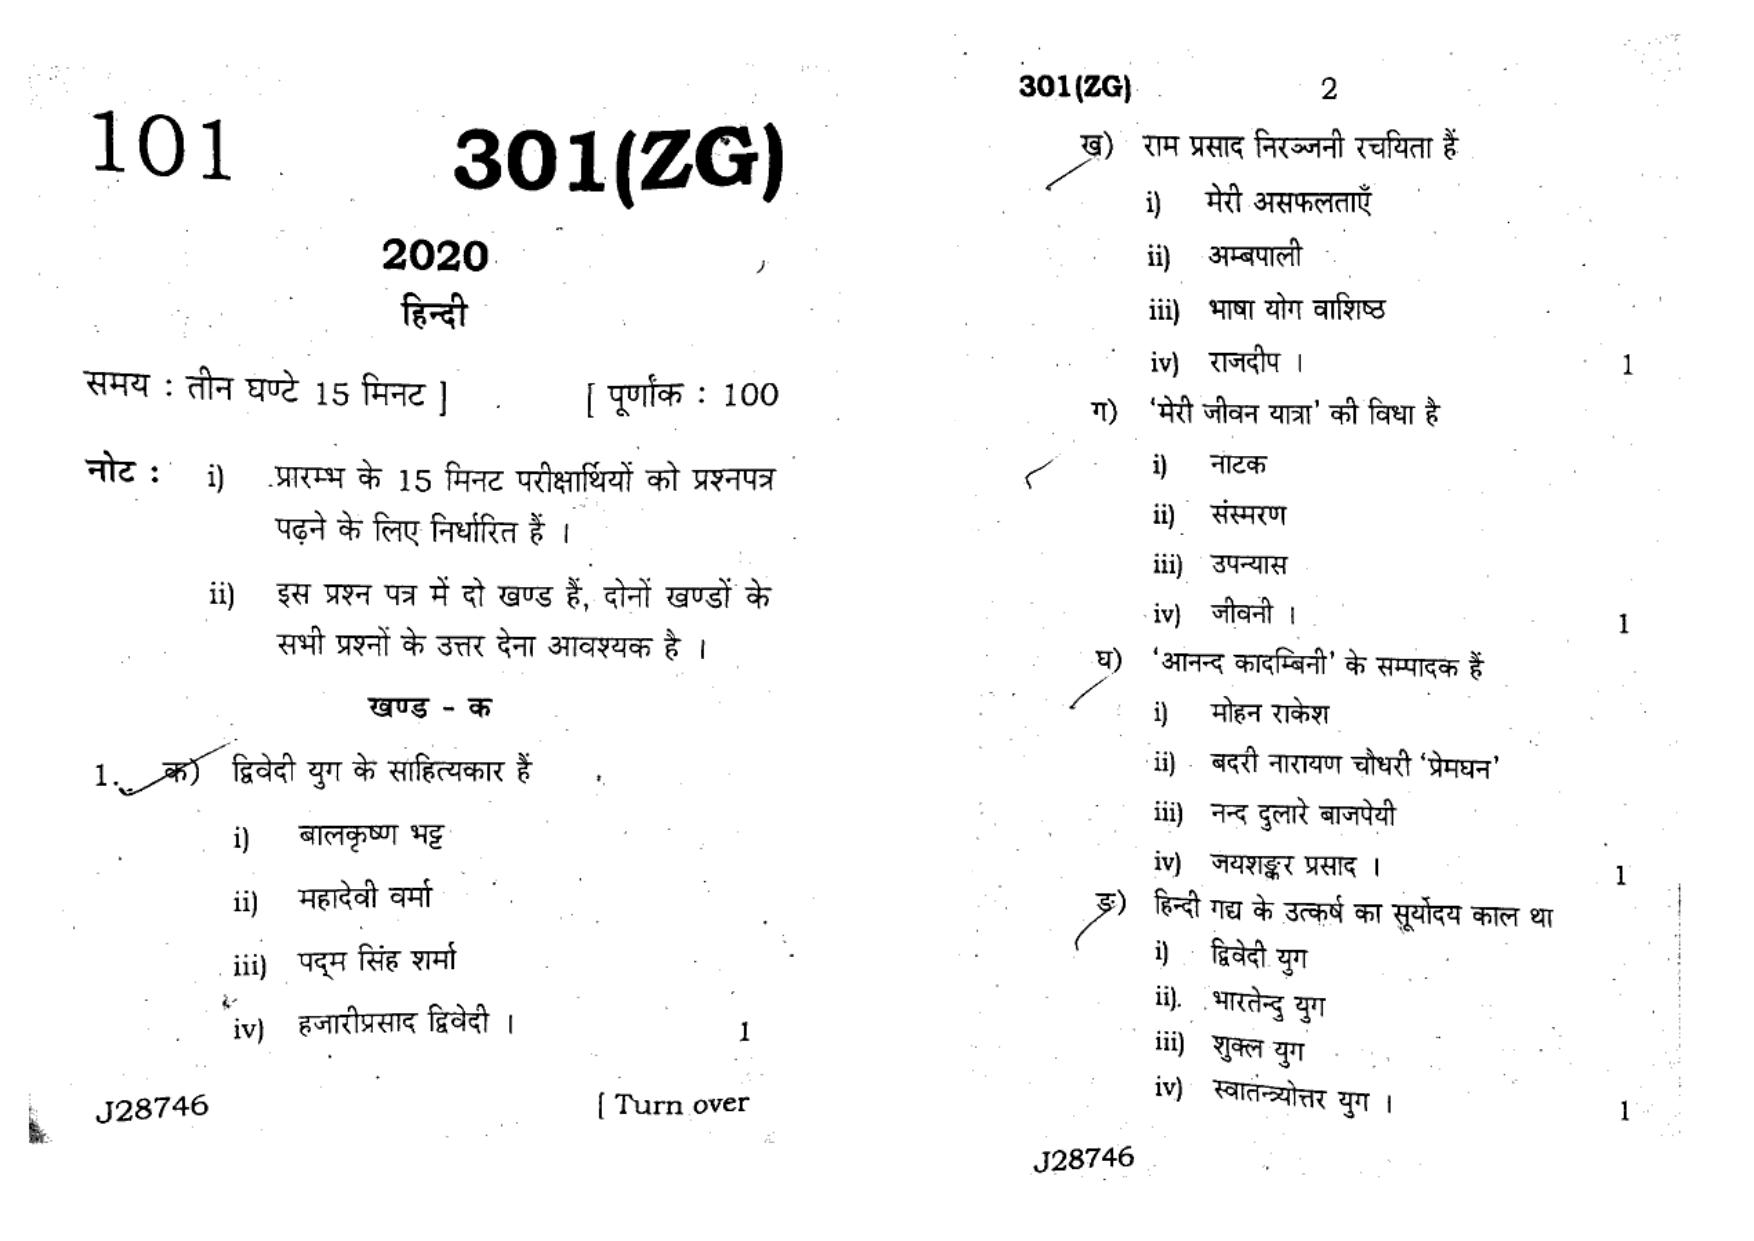 101
301(ZG)
2020
हिन्दी
समय : तीन घण्टे 15 मिनट ]
[ पूर्णांक : 100
नोट : i) प्रारम्भ के 15 मिनट परीक्षार्थियों को प्रश्नपत्र
पढ़ने के लिए निर्धारित हैं ।
ii) इस प्रश्न पत्र में दो खण्ड हैं, दोनों खण्डों के
सभी प्रश्नों के उत्तर देना आवश्यक है ।
खण्ड - क
1. क) द्विवेदी युग के साहित्यकार हैं
i) बालकृष्ण भट्ट
ii) महादेवी वर्मा
iii) पद्म सिंह शर्मा
iv) हजारीप्रसाद द्विवेदी । 1
J28746
[ Turn over
301(ZG) 2
ख) राम प्रसाद निरञ्जनी रचयिता हैं
i) मेरी असफलताएँ
ii) अम्बपाली
iii) भाषा योग वाशिष्ठ
iv) राजदीप । 1
ग) ‘मेरी जीवन यात्रा’ की विधा है
i) नाटक
ii) संस्मरण
iii) उपन्यास
iv) जीवनी । 1
घ) ‘आनन्द कादम्बिनी’ के सम्पादक हैं
i) मोहन राकेश
ii) बदरी नारायण चौधरी ‘प्रेमघन’
iii) नन्द दुलारे बाजपेयी
iv) जयशङ्कर प्रसाद । 1
ङ) हिन्दी गद्य के उत्कर्ष का सूर्योदय काल था
i) द्विवेदी युग
ii). भारतेन्दु युग
iii) शुक्ल युग
iv) स्वातन्त्र्योत्तर युग । 1
J28746